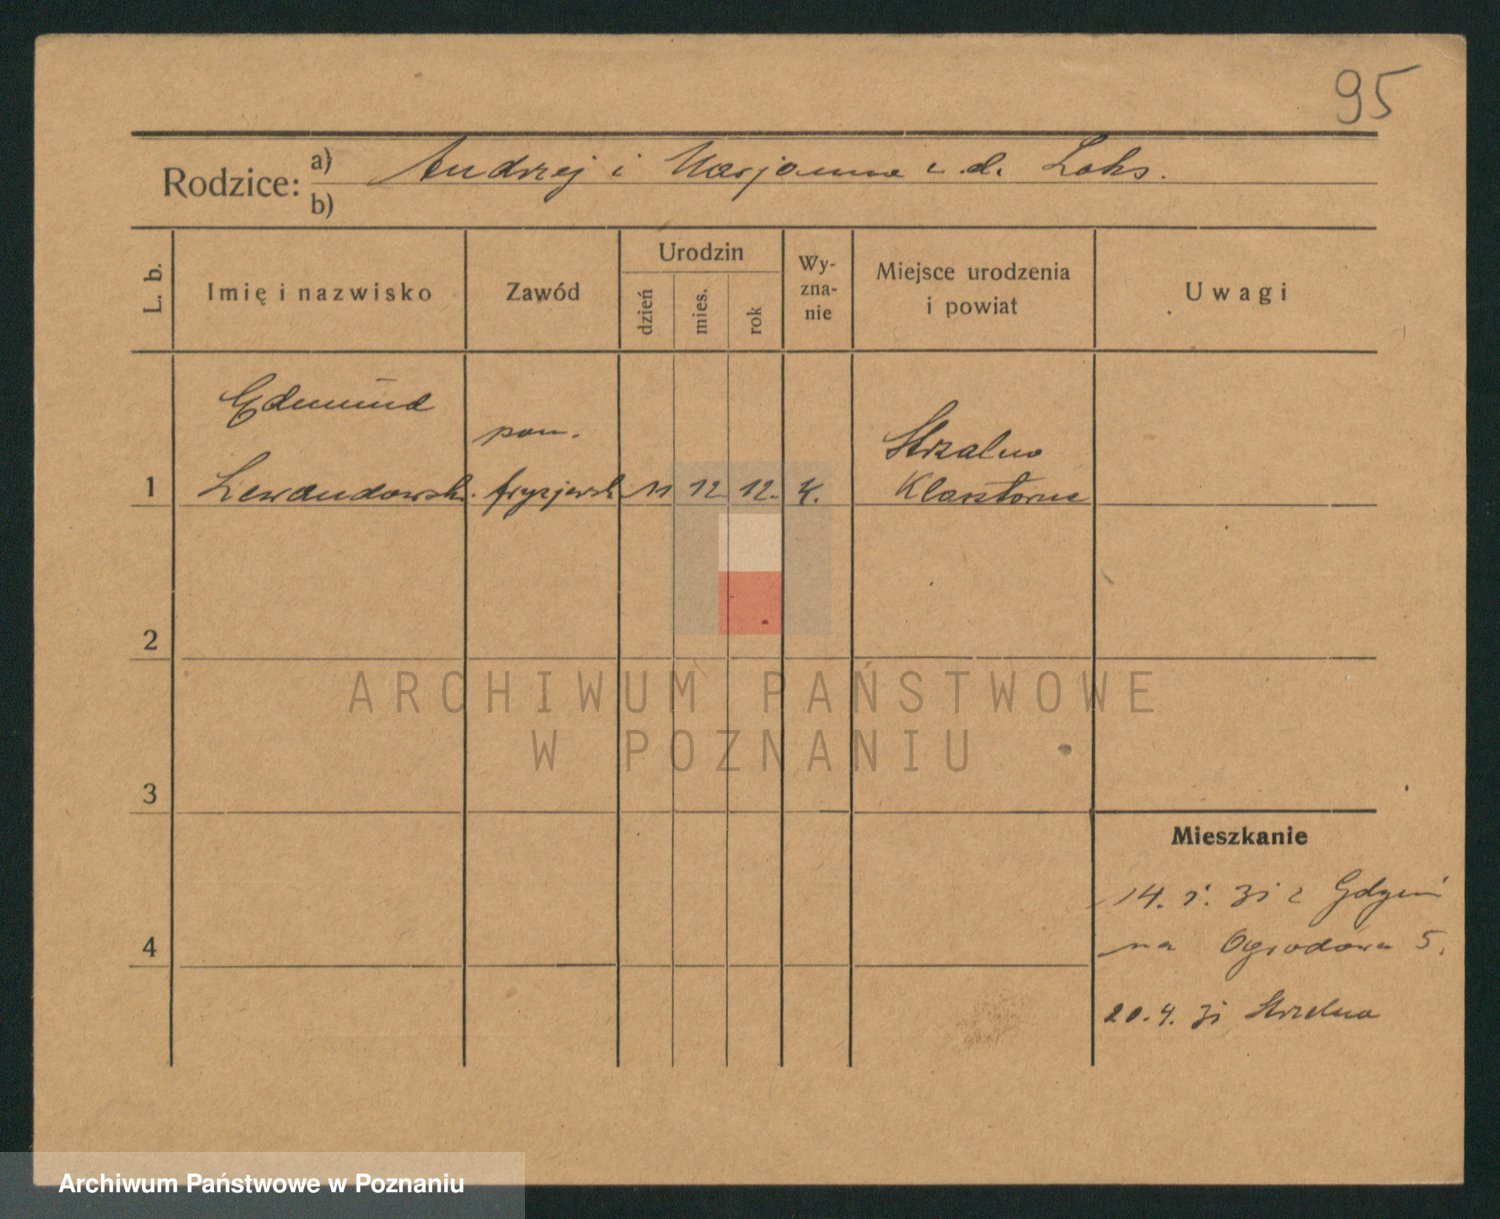 95
Rodzice:
a) Andrzej i Marjanna z d. Loks.
b)
L. b.
Imię i nazwisko
Zawód
Urodzin
dzień
mies.
rok
Wy-
zna-
nie
Miejsce urodzenia
i powiat
Uwagi
Edmund
pom.
Strzalno
1 Lewandowski. fryzjersk. 11 12. 12. K. Klasztorne
2
3
4
Mieszkanie
14. 1. 31 z Gdyni
na Ogrodowa 5.
20. 4. 31 Strzelno
ARCHIWUM PAŃSTWOWE
W POZNANIU
Archiwum Państwowe w Poznaniu